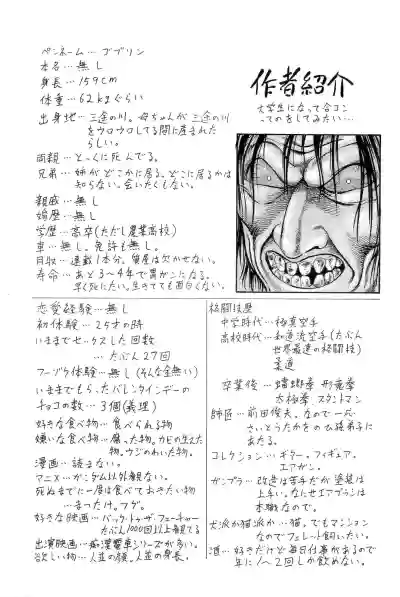 ペンネーム…ゴブリン
本名…無し
身長…159cm
体重…62kgぐらい
出身地…三途の川。母ちゃんが三途の川
をウロウロしてる間に産まれた
らしい。
両親…とっくに死んでる。
兄弟…姉がどこかに居る。どこに居るかは
知らない。会いたくもない。
親戚…無し
婚歴…無し
学歴…高卒(ただし農業高校)
車…無し。免許も無し。
月収…連載1本分。質屋は欠かせない。
寿命…あと3〜4年で胃がンになる。
早く死にたい。生きてても面白くない。
作者紹介
大学生になって合コン
ってのをしてみたい…
恋愛経験…無し
初体験…25才の時
いままでセックスした回数
…たぶん27回
フーゾク体験…無し(そんな金無い)
いままでもらったバレンタインデーの
チョコの数…3個(義理)
好きな食べ物…食べられる物
嫌いな食べ物…腐った物。カビの生えた
物。ウジのわいた物。
漫画…読まない。
アニメ…ガンダム以外観ない。
死ぬまでに一度は食べておきたい物
…まつたけ。フグ。
好きな映画…バック・トゥ・ザ・フューチャー
たぶん1000回以上観てる
出演映画…痴漢電車シリーズが多い。
欲しい物…人並の顔。人並の身長。
格闘技歴
中学時代…極真空手
高校時代…和道流空手(たぶん
世界最速の格闘技)
柔道
卒業後…蟷螂拳 形意拳
太極拳 スタントマン
師匠…前田俊夫。なので一応
さいとうたかをのひ孫弟子に
あたる。
コレクション…ギター。フィギュア。
エアガン。
ガンプラ…改造は苦手だが塗装は
上手い。なにせエアブラシは
本職なので。
犬派か猫派か…猫。でもマンション
なのでフェレット飼いたい。
酒…好きだけど毎日仕事があるので
年に1〜2回しか飲めない。